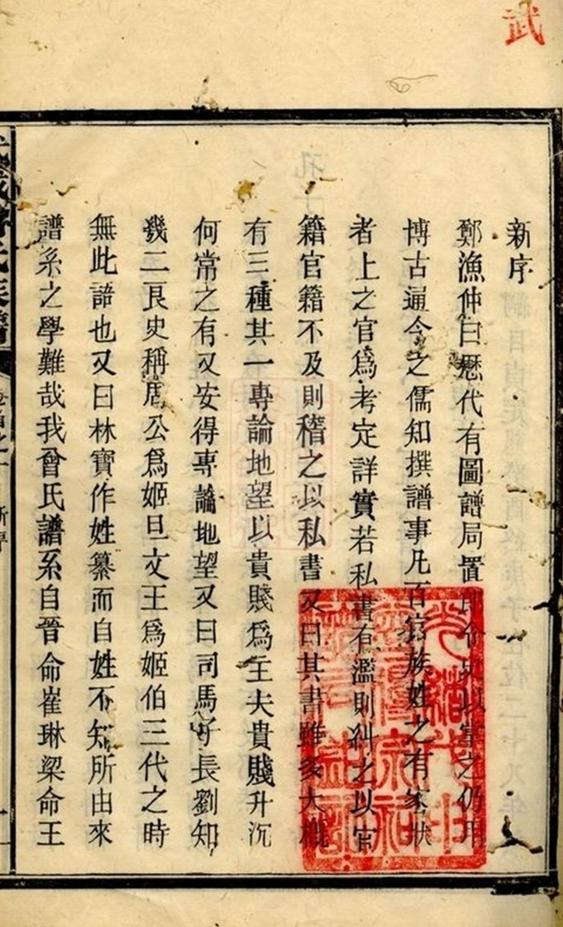 武
新序
鄭漁仲曰歷代有圖譜局置郎令史以掌之仍用
博古通今之儒知撰譜事凡百官族姓之有家狀
者上之官爲考定詳實若私書有濫則糾之以官
籍官籍不及則稽之以私書又曰其書雖多大槪
有三種其一專論地望以貴賤爲主夫貴賤升沉
何常之有又安得專論地望又曰司馬子長劉知
幾二良史稱周公爲姬旦文王爲姬伯三代之時
無此語也又曰林寶作姓纂而自姓不知所由來
譜系之學難哉我曾氏譜系自晉命崔琳梁命王
氏族譜
新序